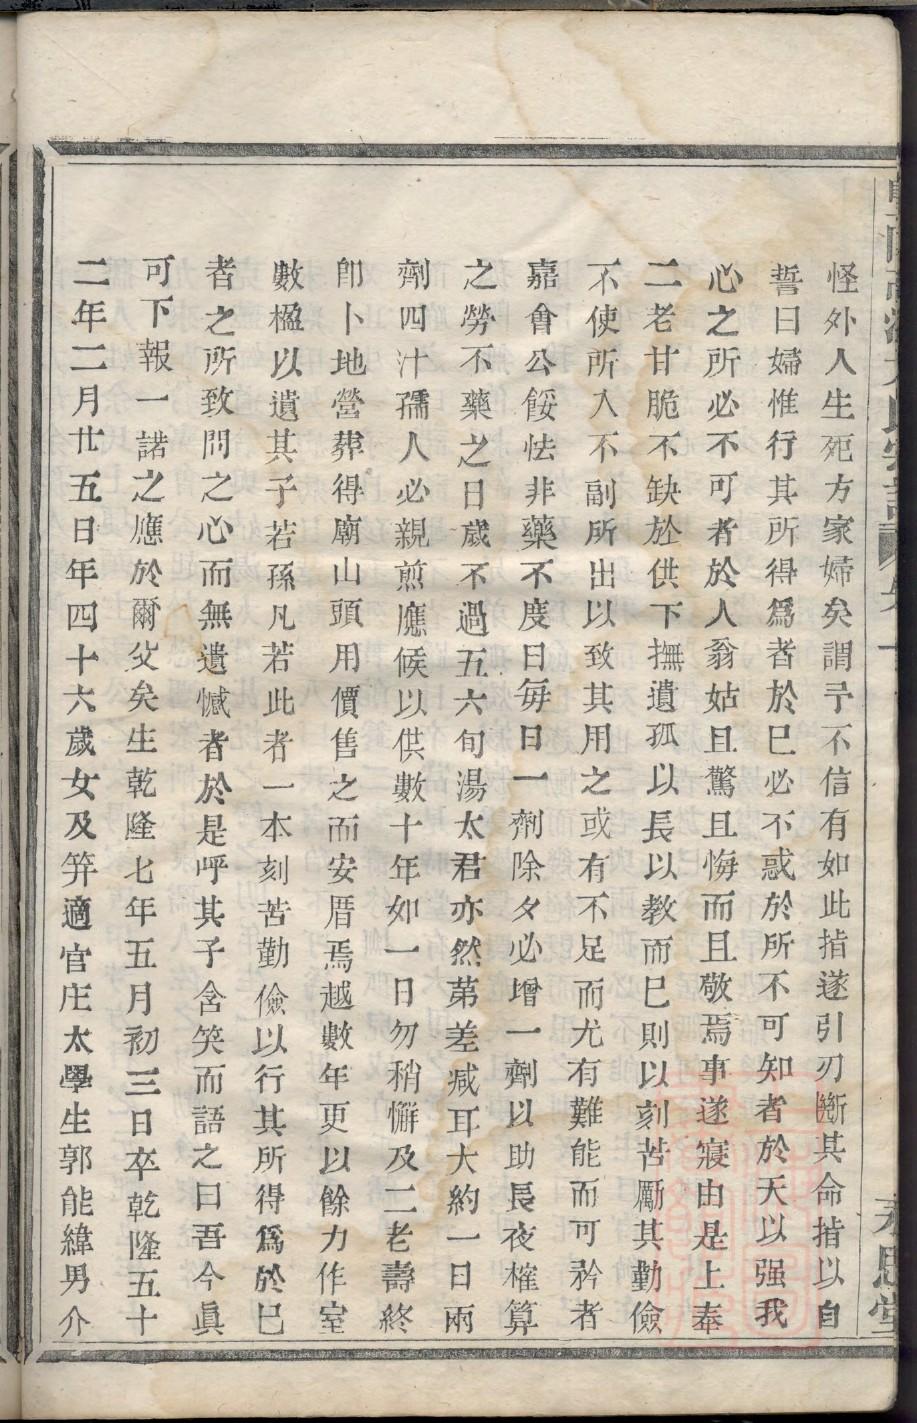 怪外人生死方家婦矣謂予不信有如此指遂引刃斷其命指以自
誓曰婦惟行其所得爲者於巳必不惑於所不可知者於天以强我
心之所必不可者於人翁姑且驚且悔而且敬焉事遂寢由是上奉
二老甘脆不缺於供下撫遺孤以長以教而巳則以刻苦勵其勤儉
不使所入不副所出以致其用之或有不足而尤有難能而可矜者
嘉會公餒怯非藥不度日每日一劑除夕必增一劑以助長夜榷算
之勞不藥之日歲不過五六旬湯太君亦然第差减耳大約一日兩
劑四汁孺人必親煎應候以供數十年如一日勿稍懈及二老壽終
卽卜地營葬得廟山頭用價售之而安厝焉越數年更以餘力作室
數楹以遺其子若孫凡若此者一本刻苦勤儉以行其所得爲於巳
者之所致問之心而無遺憾者於是呼其子含笑而語之曰吾今眞
可下報一諾之應於爾父矣生乾隆七年五月初三日卒乾隆五十
二年二月廿五日年四十六歲女及笄適官庄太學生郭能緯男介